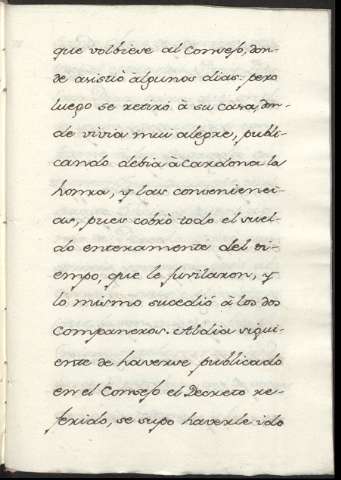 que volbiese al Consejo, don-
de asistiò àlgunos dias: pero
luego se retirò à su casa, don-
de vivia mui alegre, publi-
cando debia à Cardona la
honra, y las convenienci-
as, pues cobrò todo el suel-
do enteramente del ti-
empo, que le juvilaron, y
lo mismo sucediò à los dos
Companeros. Al dia sigui-
ente de haverse publicado
en el Consejo el Decreto re-
ferido, se supo haverle ido